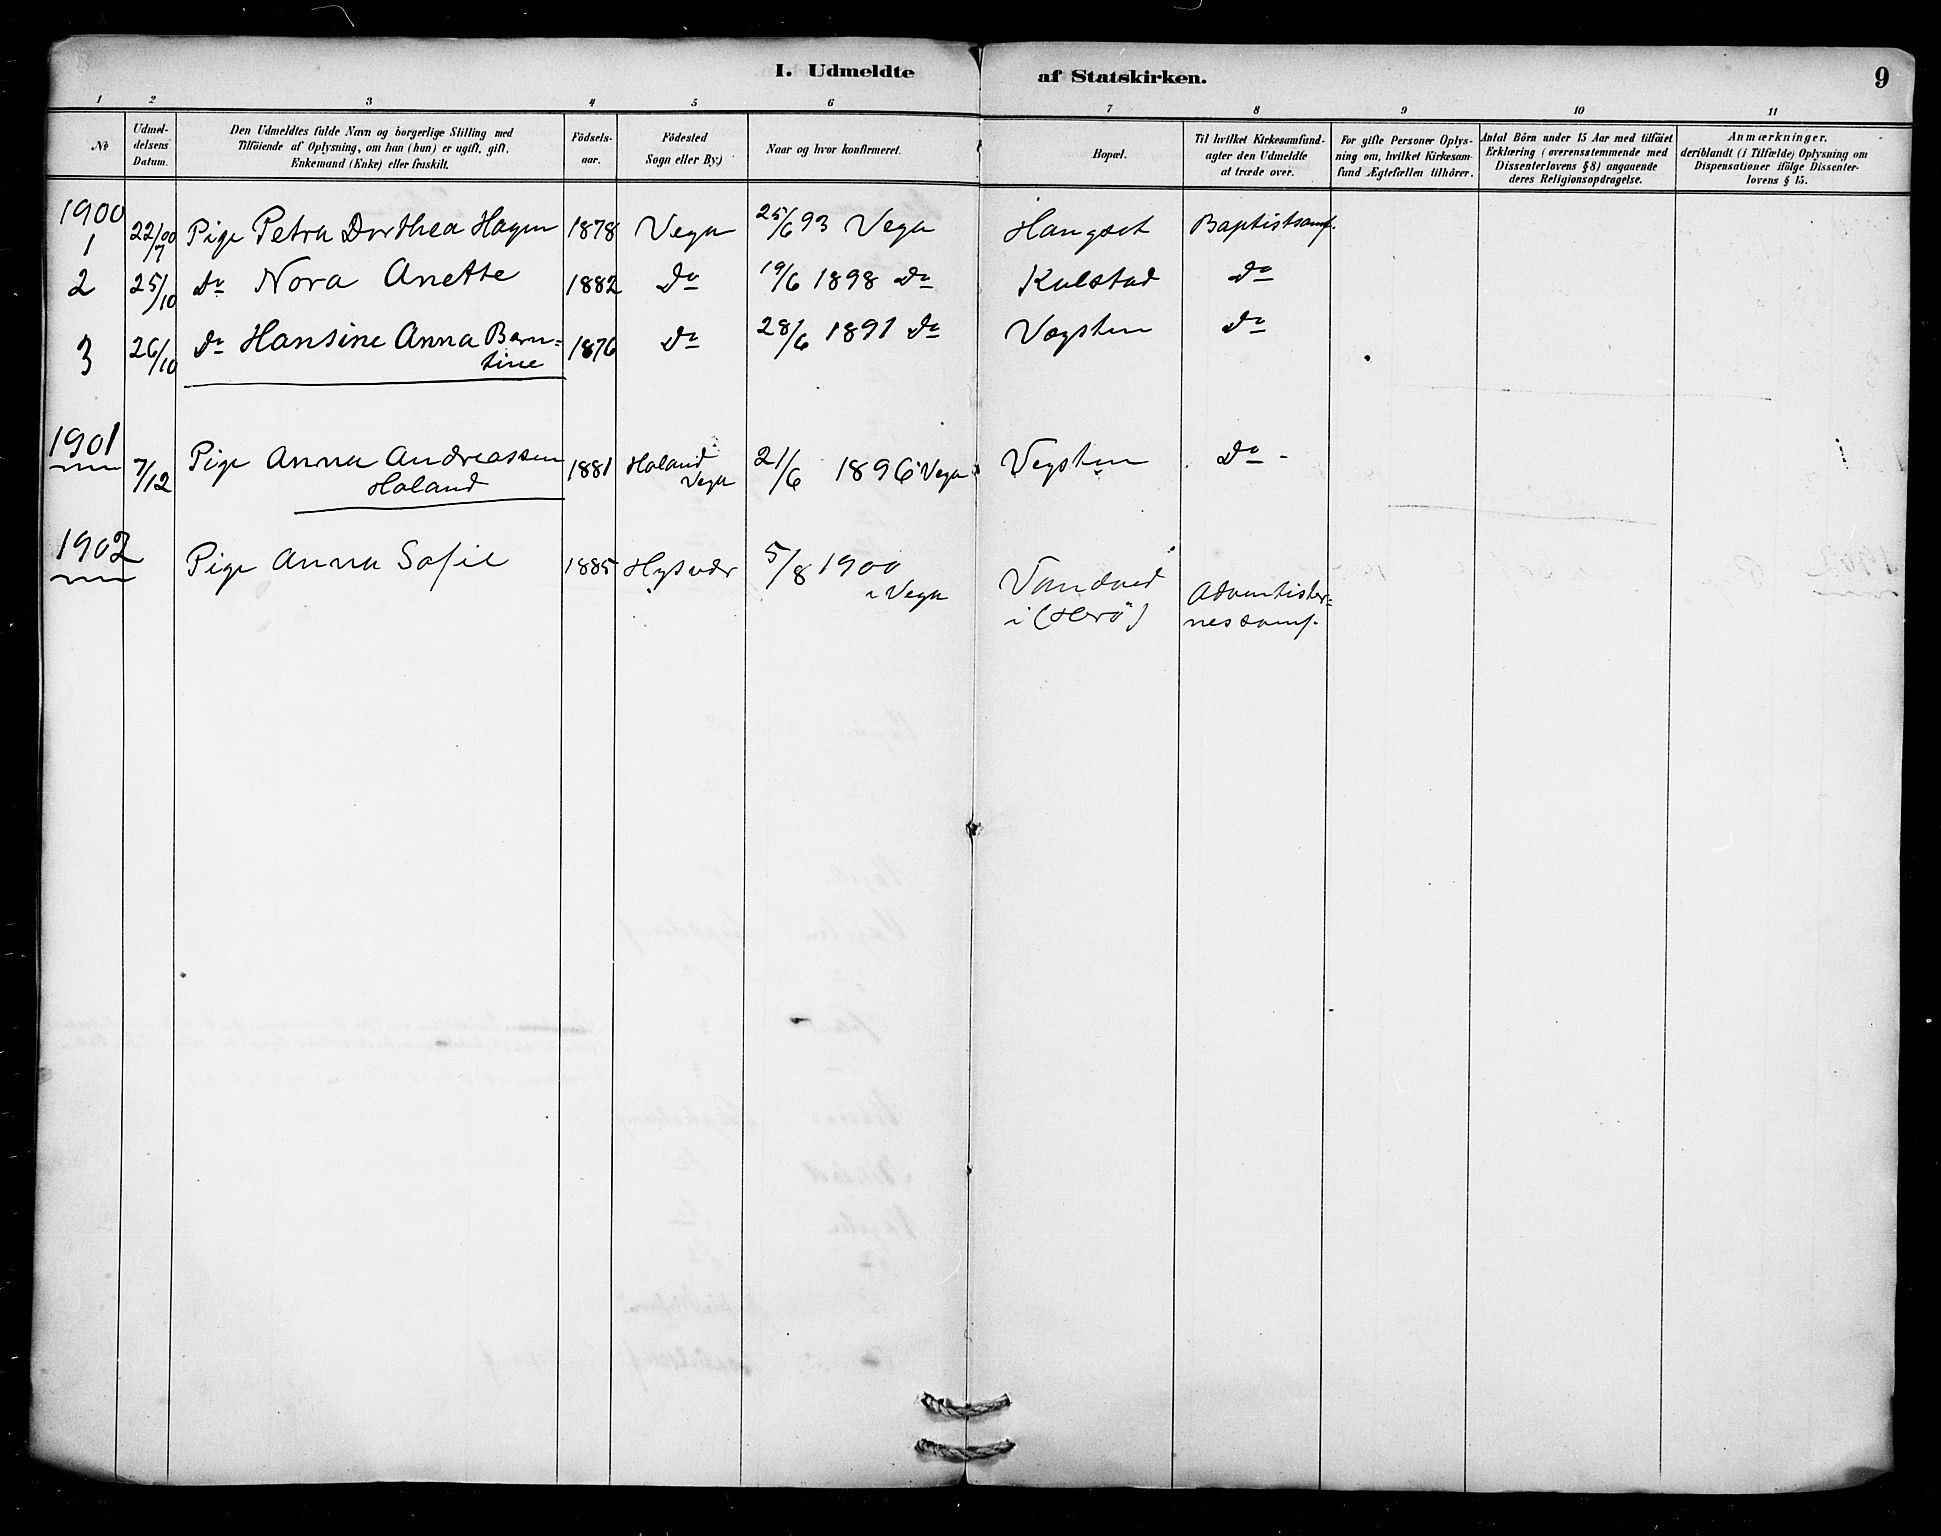 I. Udmeldte af Statskirken. 9
1 2 3 4 5 6 7 8 9 10 11
№ Udmeldelsens Datum. Den Udmeldtes fulde Navn og borgerlige Stilling med Tilføiende af Oplysning, om han (hun) er ugift, gift, Enkemand (Enke) eller fraskilt. Fødselsaar. Fødested Sogn eller By.) Naar og hvor konfirmeret. Bopæl. Til hvilket Kirkesamfund agter den Udmeldte at træde over. For gifte Personer Oplysning om, hvilket Kirkesamfund Ægtefællen tilhører. Antal Børn under 15 Aar med tilføiet Erklæring (overensstemmende med Dissenterlovens §8) angaaende deres Religionsopdragelse. Anmærkninger, deriblandt (i Tilfælde) Oplysning om Dispensationer ifølge Dissenterlovens § 15.
1900
1 22/7 00 Pige Petra Dorthea Hagen 1878 Vega 25/6 93 Vega Hangset Baptistsamf.
2 25/10 Do Nora Anette 1882 Do 19/6 1898 Do Kulstad Do
3 26/10 Do Hansine Anna Barn=
tine 1876 Do 28/6 1891 Do Vægsten Do
1901
7/12 Pige Anna Andreassen
Holand 1881 Holand
Vega 21/6 1896 Vega Vegsten Do
1902
Pige Anna Sofie 1885 Hysvær 5/8 1900
i Vega Tandved
i (Herö) Adventister=
nes samf.